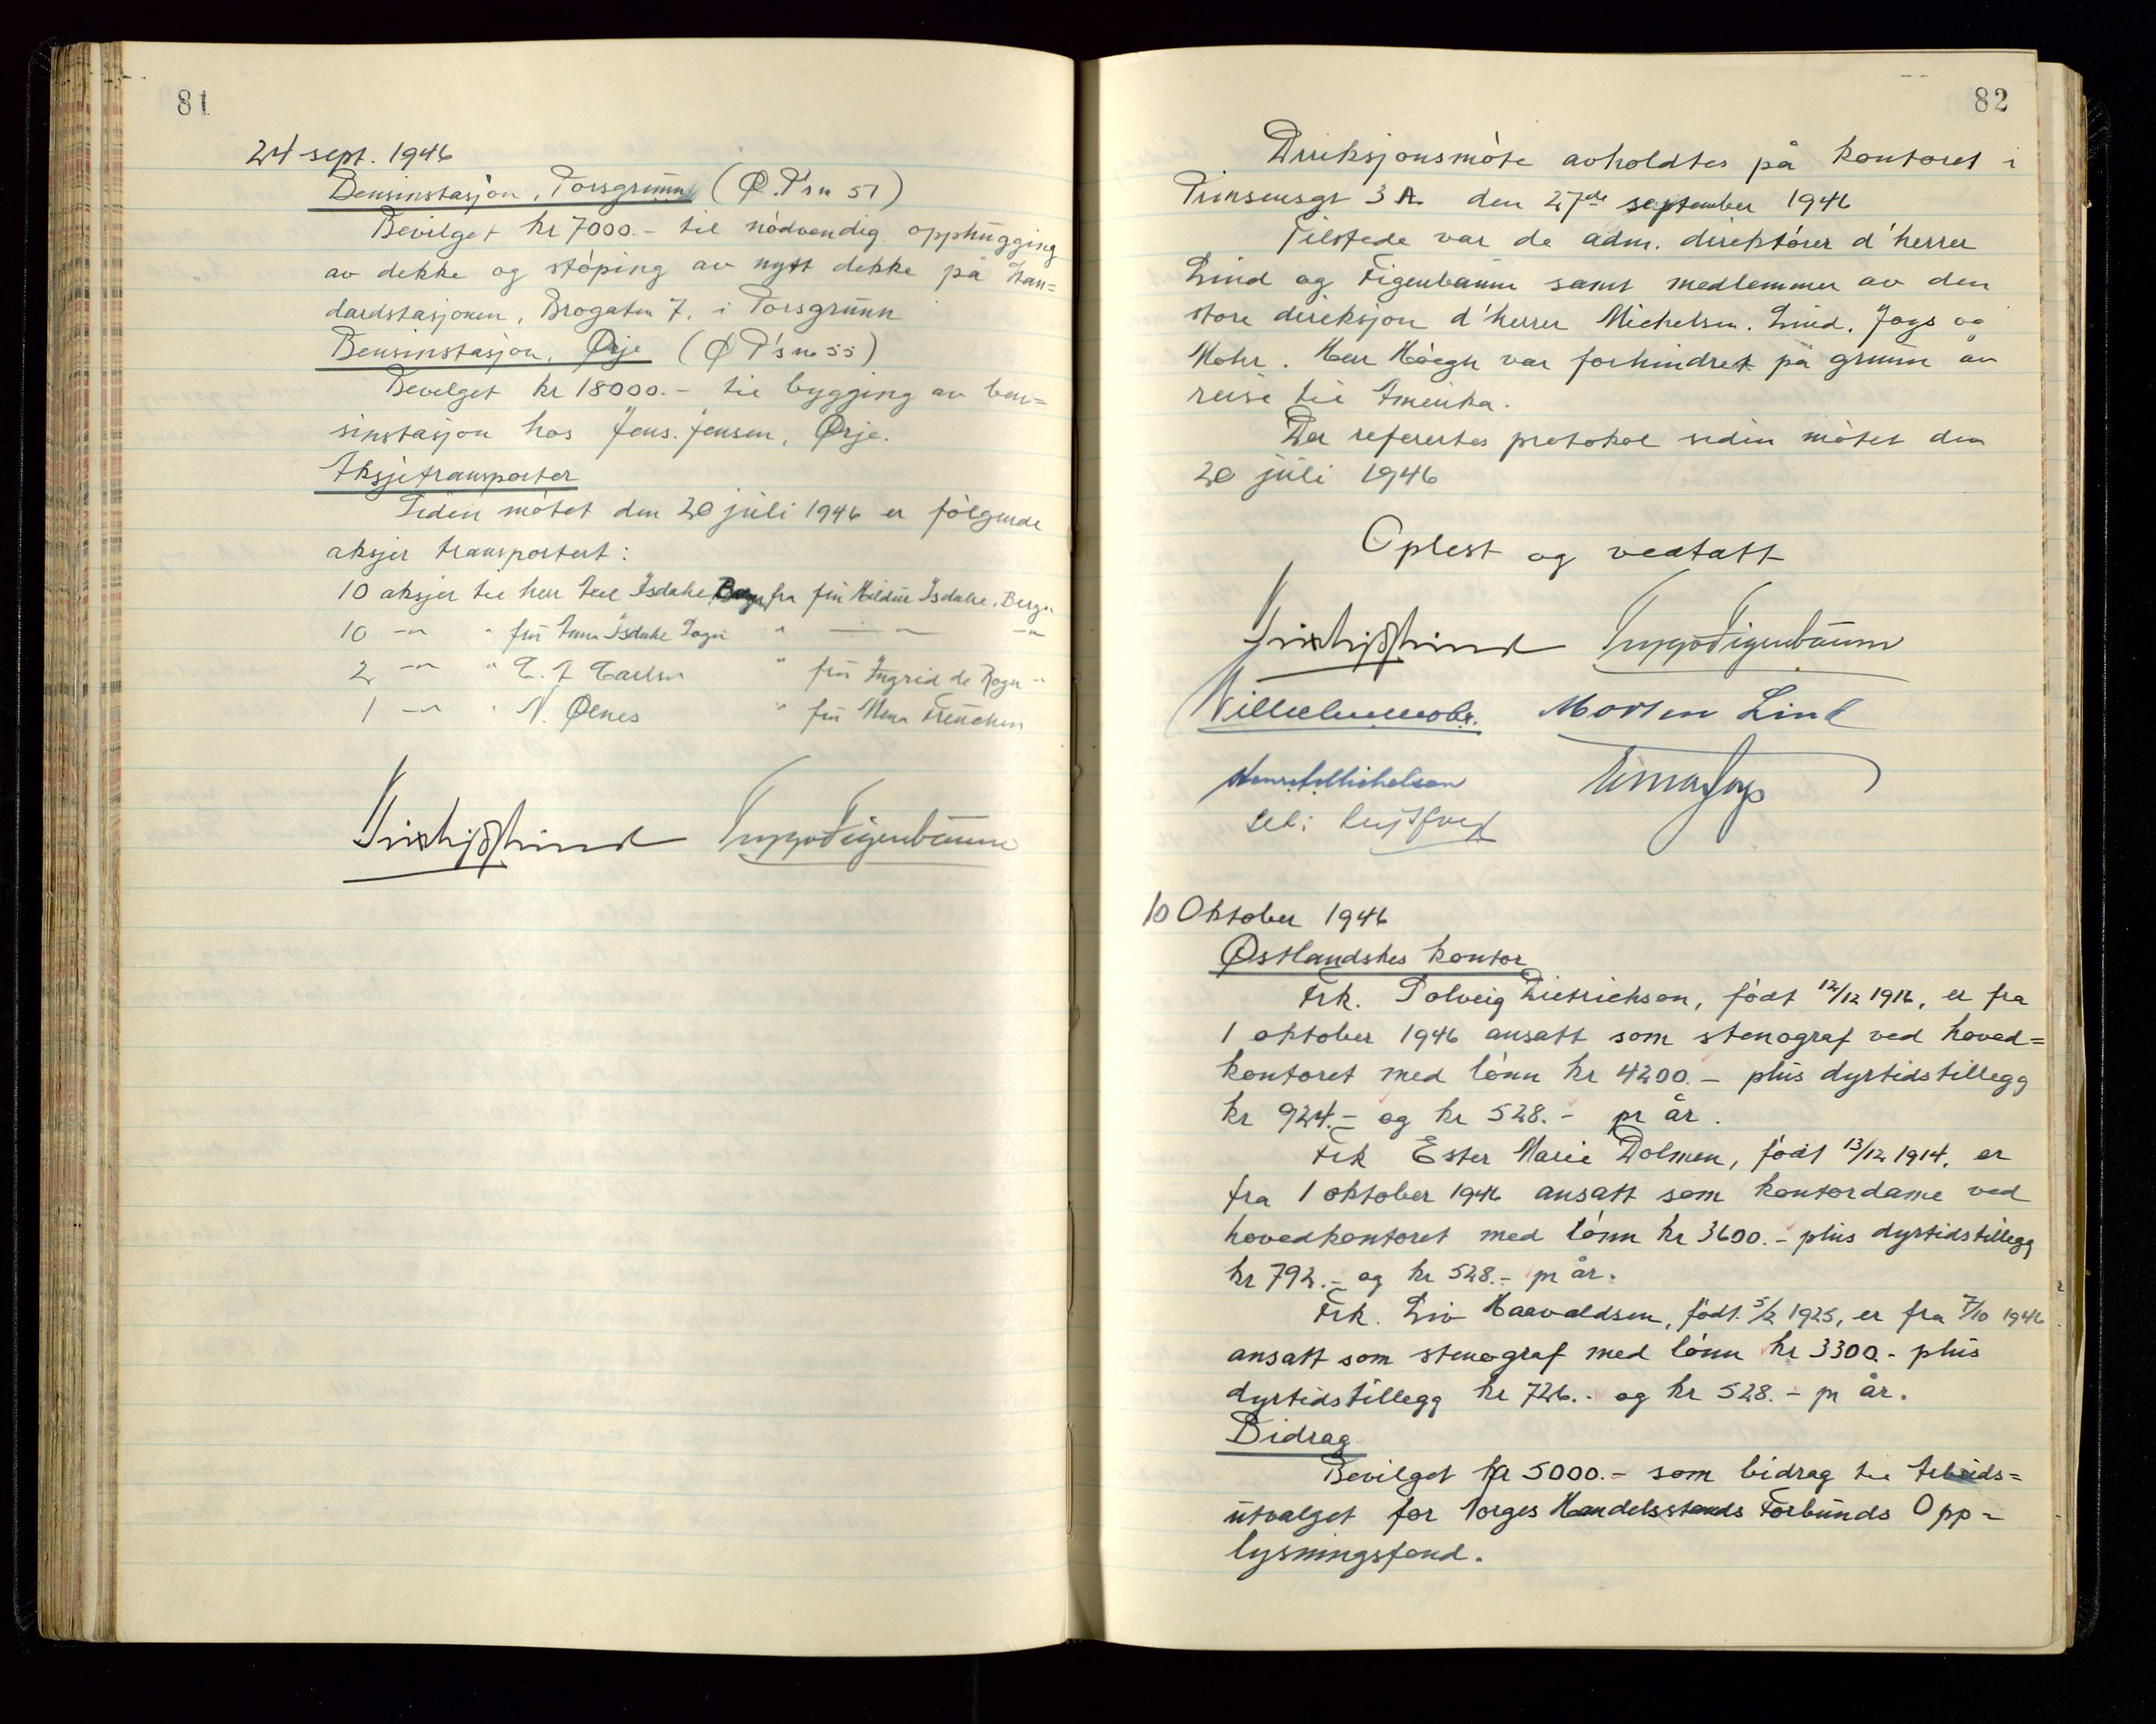 81
24 sept. 1946
Bensinstasjon, Porsgrunn (Ø.P's nr 51)
Bevilget kr 7000.- til nödvendig opphugging
av dekke og stöping av nytt dekke på Stan=
dardstasjonen, Brogaten 7, i Porsgrunn
Bensinstasjon, Ørje (Ø P's nr 55)
Bevilget kr 18000.- til bygging av ben=
sinstasjon hos Jens Jensen, Ørje.
Aksjetransporter
Siden mötet den 20 juli 1946 er fölgende
aksjer transportert:
10 aksjer til herr Isdahl, fra fru Hildur Isdahl, Bergen
10 -"- " fru Anna Isdahl " -"- -"-
2 -"- " " fru Ingrid de
1 -"- " N. Ølnes " fru
82
Direksjonsmöte avholdtes på kontoret i
Prinsensgt 3 A den 27de september 1946
Tilstede var de adm. direktörer d'herrer
Lind og Figenbaum samt medlemmer av den
store direksjon d'herrer Michelsen, Lind, Jays og
Mohr. Herr Höegh var forhindret på grunn av
reise til Amerika.
Der refertes protokol siden mötet den
20 juli 1946
Oplest og vedtatt
Morten Lind
10 Oktober 1946
Østlandskes kontor
Frk. Solveig Dietrichson, födt 12/12 1916, er fra
1 oktober 1946 ansatt som stenograf ved hoved=
kontoret med lönn kr 4200.- plus dyrtidstillegg
kr 924.- og kr 528.- pr år.
Frk Ester Marie Dolmen, födt 13/12 1914, er
fra 1 oktober 1946 ansatt som kontordame ved
hovedkontoret med lönn kr 3600.- plus dyrtidstillegg
kr 792.- og kr 528.- pr år.
Frk. Liv Haavaldsen, födt 5/2 1925, er fra 7/10 1946
ansatt som stenograf med lönn kr 3300.- plus
dyrtidstillegg kr 726.- og kr 528.- pr år.
Bidrag
Bevilget kr 5000.- som bidrag til Arbeids=
utvalget for Norges Handelsstands Forbunds Opp=
lysningsfond.